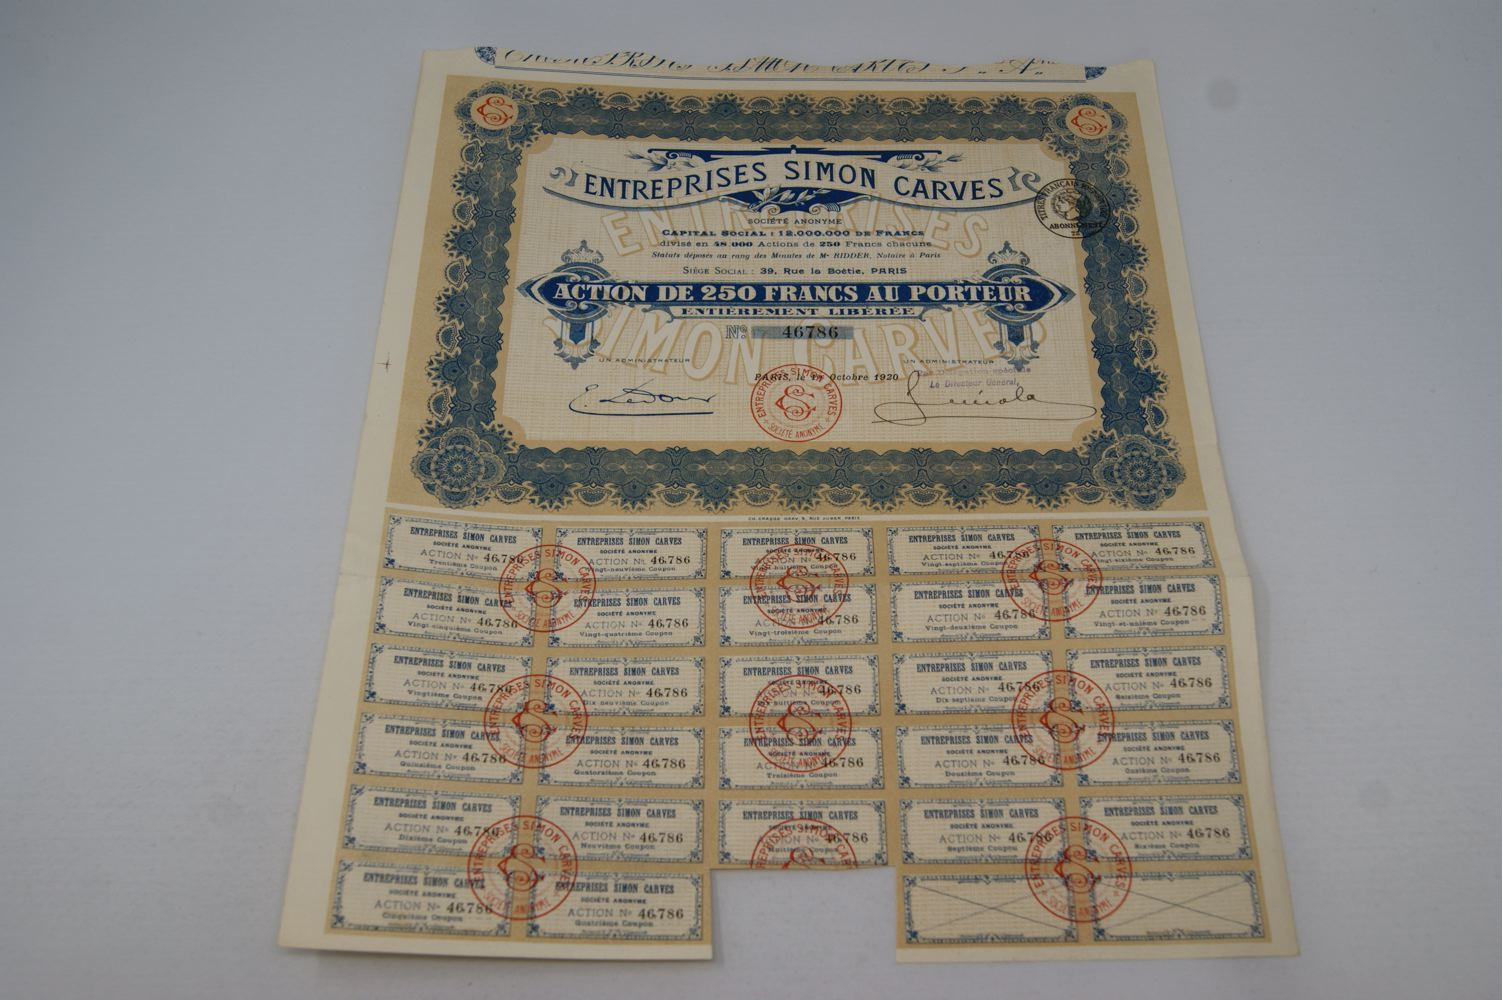 ENTREPRISES SIMON CARVES
SOCIÉTÉ ANONYME
CAPITAL SOCIAL : 12.000.000 DE FRANCS
divisé en 48.000 Actions de 250 Francs chacune
Statuts déposés au rang des Minutes de Me RIDDER, Notaire à Paris
SIÈGE SOCIAL : 39, Rue la Boëtie, PARIS
ACTION DE 250 FRANCS AU PORTEUR
ENTIÈREMENT LIBÉRÉE
No. 46786
ENTREPRISES
SIMON CARVES
ABONNEMENT
UN ADMINISTRATEUR
UN ADMINISTRATEUR
PARIS, le 1er Octobre 1920
Le Directeur Général,
ENTREPRISES SIMON CARVES
SOCIÉTÉ ANONYME
ENTREPRISES SIMON CARVES
SOCIÉTÉ ANONYME
ACTION No 46.786
Trentième Coupon
ENTREPRISES SIMON CARVES
SOCIÉTÉ ANONYME
ACTION No 46.786
Vingt-neuvième Coupon
ENTREPRISES SIMON CARVES
SOCIÉTÉ ANONYME
ACTION No 46.786
Vingt-huitième Coupon
ENTREPRISES SIMON CARVES
SOCIÉTÉ ANONYME
ACTION No 46.786
Vingt-septième Coupon
ENTREPRISES SIMON CARVES
SOCIÉTÉ ANONYME
ACTION No 46.786
Vingt-sixième Coupon
ENTREPRISES SIMON CARVES
SOCIÉTÉ ANONYME
ACTION No 46.786
Vingt-cinquième Coupon
ENTREPRISES SIMON CARVES
SOCIÉTÉ ANONYME
ACTION No 46.786
Vingt-quatrième Coupon
ENTREPRISES SIMON CARVES
SOCIÉTÉ ANONYME
ACTION No 46.786
Vingt-troisième Coupon
ENTREPRISES SIMON CARVES
SOCIÉTÉ ANONYME
ACTION No 46.786
Vingt-deuxième Coupon
ENTREPRISES SIMON CARVES
SOCIÉTÉ ANONYME
ACTION No 46.786
Vingt et unième Coupon
ENTREPRISES SIMON CARVES
SOCIÉTÉ ANONYME
ACTION No 46.786
Vingtième Coupon
ENTREPRISES SIMON CARVES
SOCIÉTÉ ANONYME
ACTION No 46.786
Dix-neuvième Coupon
ENTREPRISES SIMON CARVES
SOCIÉTÉ ANONYME
ACTION No 46.786
Dix-huitième Coupon
ENTREPRISES SIMON CARVES
SOCIÉTÉ ANONYME
ACTION No 46.786
Dix-septième Coupon
ENTREPRISES SIMON CARVES
SOCIÉTÉ ANONYME
ACTION No 46.786
Seizième Coupon
ENTREPRISES SIMON CARVES
SOCIÉTÉ ANONYME
ACTION No 46.786
Quinzième Coupon
ENTREPRISES SIMON CARVES
SOCIÉTÉ ANONYME
ACTION No 46.786
Quatorzième Coupon
ENTREPRISES SIMON CARVES
SOCIÉTÉ ANONYME
ACTION No 46.786
Treizième Coupon
ENTREPRISES SIMON CARVES
SOCIÉTÉ ANONYME
ACTION No 46.786
Douzième Coupon
ENTREPRISES SIMON CARVES
SOCIÉTÉ ANONYME
ACTION No 46.786
Onzième Coupon
ENTREPRISES SIMON CARVES
SOCIÉTÉ ANONYME
ACTION No 46.786
Dixième Coupon
ENTREPRISES SIMON CARVES
SOCIÉTÉ ANONYME
ACTION No 46.786
Neuvième Coupon
ENTREPRISES SIMON CARVES
SOCIÉTÉ ANONYME
ACTION No 46.786
Huitième Coupon
ENTREPRISES SIMON CARVES
SOCIÉTÉ ANONYME
ACTION No 46.786
Septième Coupon
ENTREPRISES SIMON CARVES
SOCIÉTÉ ANONYME
ACTION No 46.786
Sixième Coupon
ENTREPRISES SIMON CARVES
SOCIÉTÉ ANONYME
ACTION No 46.786
Cinquième Coupon
ENTREPRISES SIMON CARVES
SOCIÉTÉ ANONYME
ACTION No 46.786
Quatrième Coupon